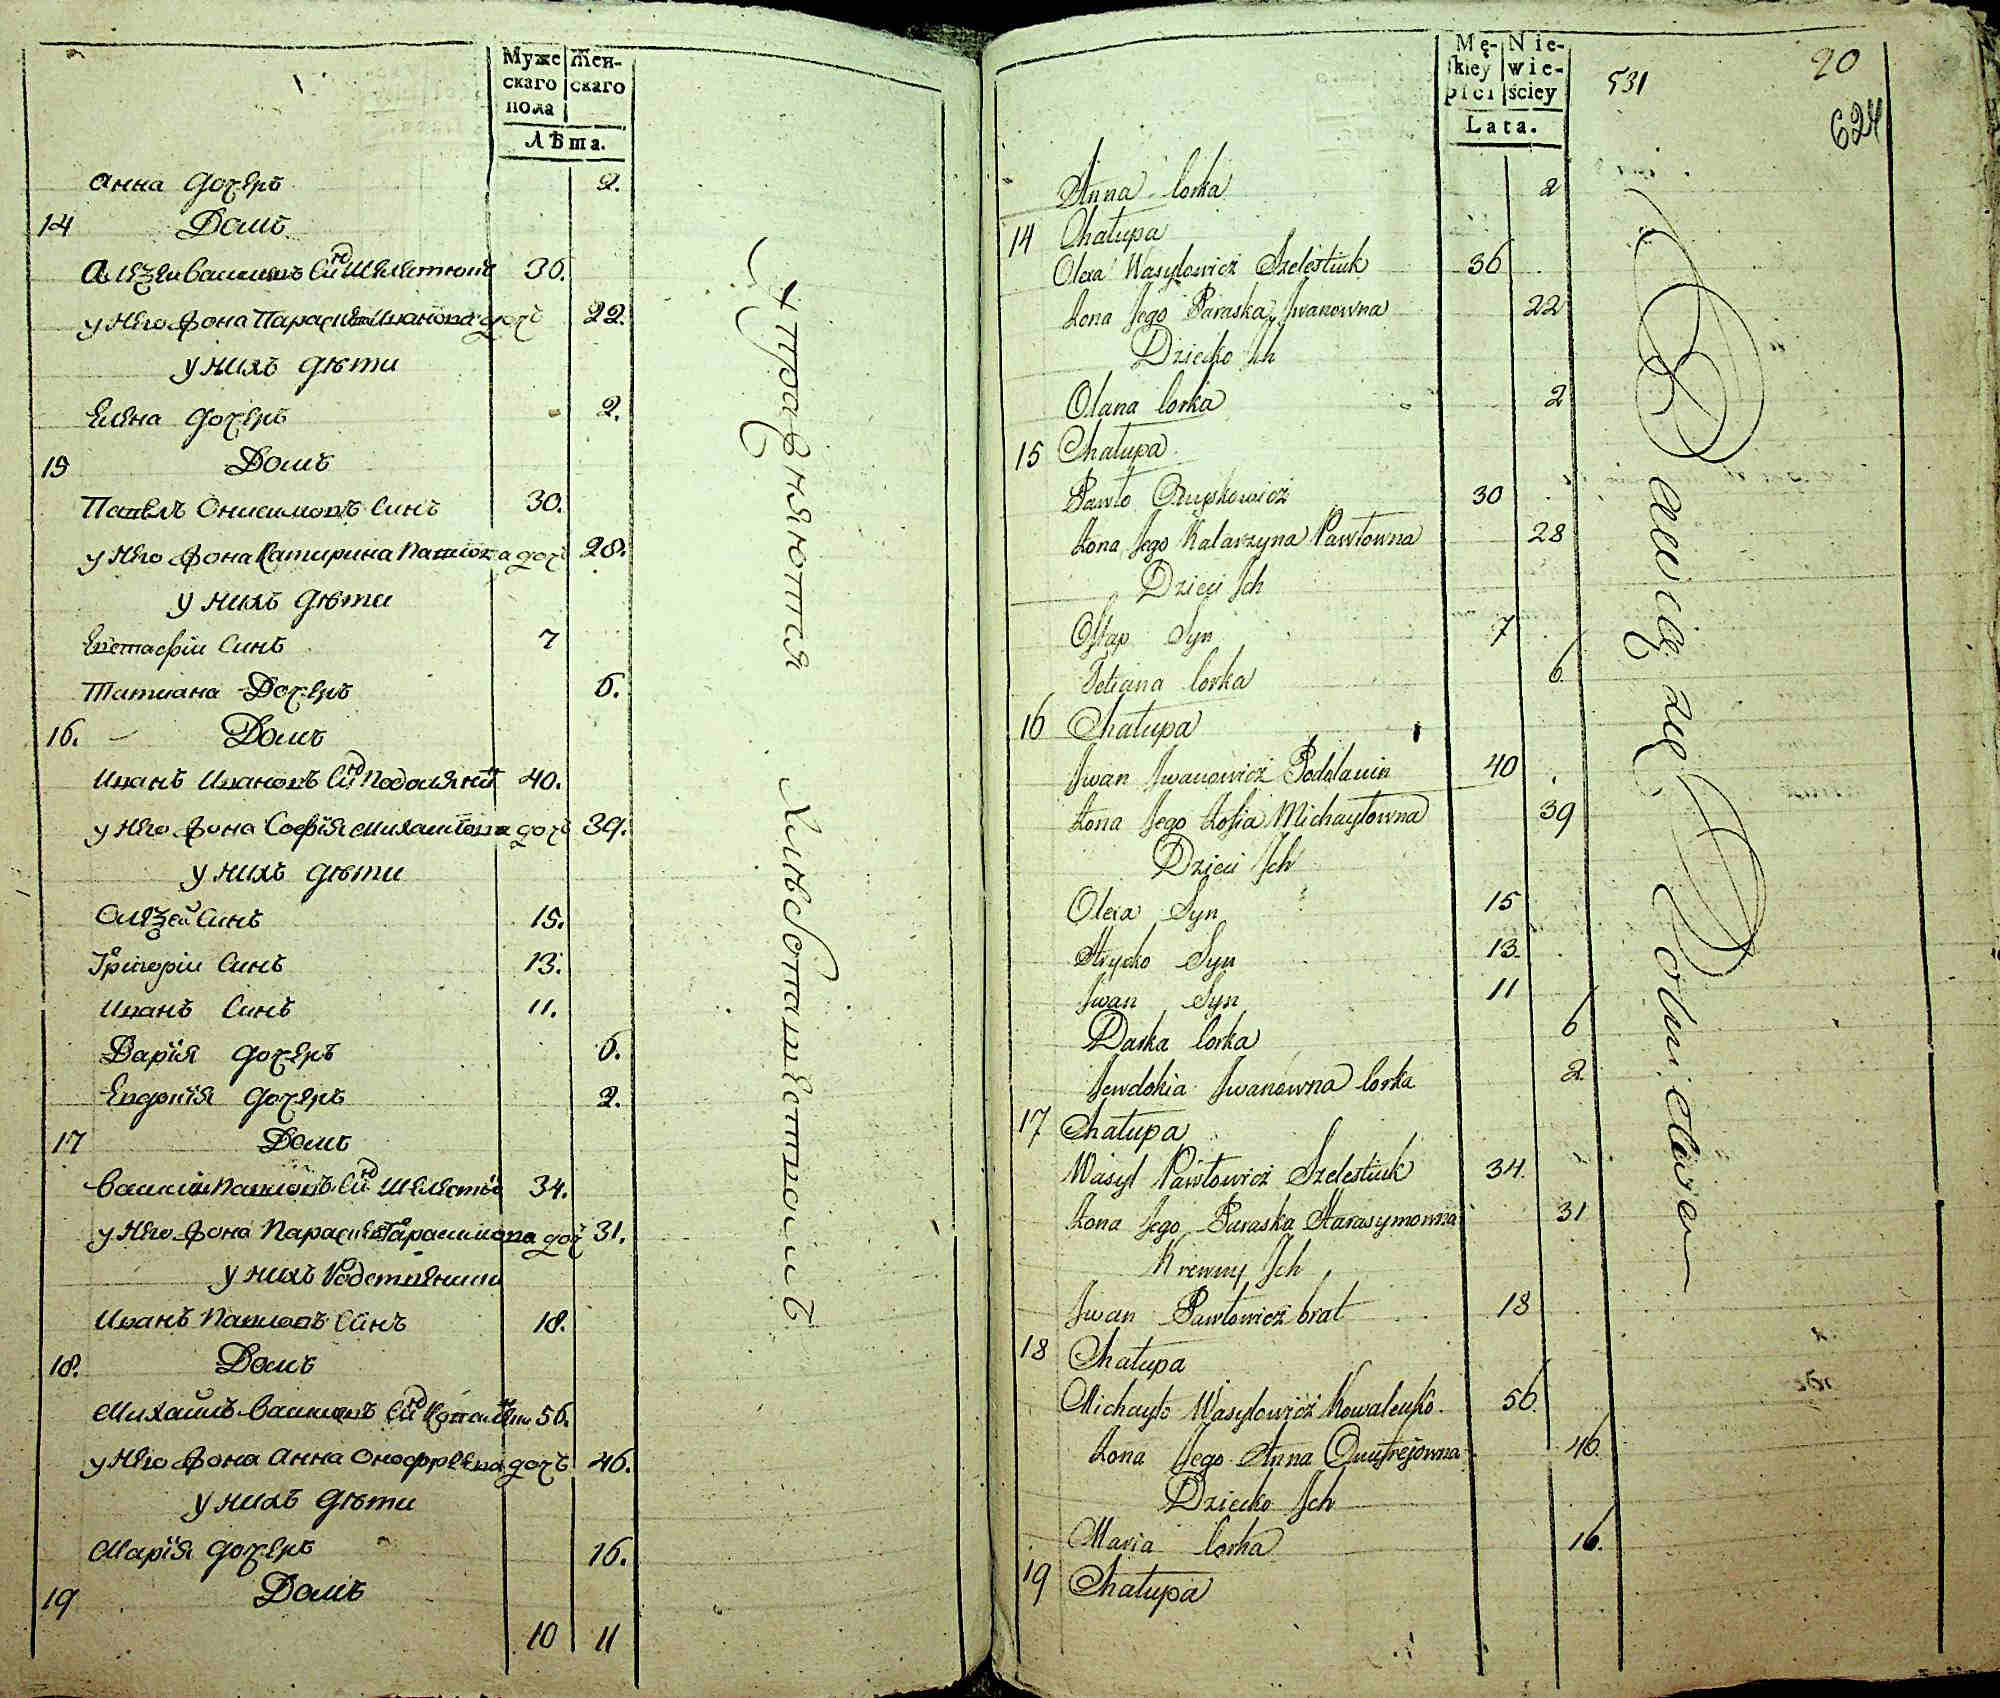 Муже
скаго
пола
Жен-
скаго
Лѣта.
Анна дочерь 2.
14 Домъ
Алеѯеи Василиевъ Синъ Шелестюкъ 36.
у него жона Параскева Иванова дочь 22.
у нихъ дѣти
Елена дочерь 2.
15 Домъ
Павелъ Онисимовъ Синъ 30.
у него жона Катирина Павлова дочь 28.
у нихъ дѣти
Евстафiи Синъ 7
Татиана Дочерь 6.
16. Домъ
Иванъ Ивановъ Синъ Подолянинъ 40.
у него жона Софiя Михайлова дочь 39.
у нихъ дѣти
Олеѯей Синъ 15.
Григорiи Синъ 13.
Иванъ Синъ 11.
Дарiя дочерь 6.
Евдокiя дочерь 2.
17 Домъ
Василiи Павловъ Синъ Шелестюк 34.
у него жона Параскева Гарасимова доч 31.
у нихъ Родственники
Иванъ Павловъ Синъ 18.
18. Домъ
Михайлъ Василиевъ Синъ Коваленко 56.
у него жона Анна Онофреева дочь 46.
у нихъ дѣти
Марiя дочерь 16.
19 Домъ
10 11
Упражняются Хлибопашествомъ
Mę-
skiey
płci
Nie-
wie-
ściey
Lata.
531
20
624
Anna Corka 2
14 Chałupa
Olexa Wasylowicz Szelestiuk 36
Zona Jego Paraska Jwanowna 22
Dziecko Jch
Olana Corka 2
15 Chałupa
Pawło 30
Zona Jego Katarzyna Pawłowna 28
Dzieci Jch
Ostap Syn 7
Tetiana Corka 6
16 Chałupa
Jwan Jwanowicz Podolanin 40
Zona Jego Zofia Michayłowna 39
Dzieci Jch
Olexa Syn 15
Hrycko Syn 13.
Jwan Syn 11
Darka Corka 6
Jewdokia Jwanowna Corka 2
17 Chałupa
Wasyl Pawłowicz Szelestiuk 34.
Zona Jego Paraska Harasymowna 31
Krewny Jch
Jwan Pawłowicz brat 18
18 Chałupa
Michayło Wasylowicz Kowalenko 56.
Zona Jego Anna Onufrejowna 46.
Dziecko Jch
Maria Corka 16.
19 Chałupa
Bawią się Rolnictwem